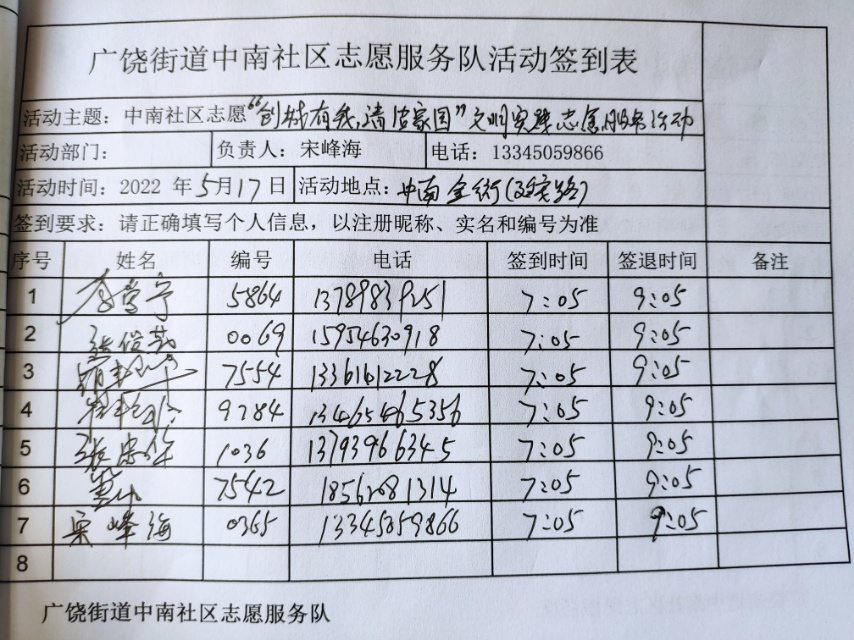 广饶街道中南社区志愿服务队活动签到表
活动主题：中南社区志愿“创城有我，清洁家园”文明实践志愿服务活动
活动部门： 负责人：宋峰海 电话：13345059866
活动时间：2022 年5月17日 活动地点：中南金街
签到要求：请正确填写个人信息，以注册昵称、实名和编号为准
序号 姓名 编号 电话 签到时间 签退时间 备注
1 5864 13789839251 7:05 9:05
2 张俊英 0069 15954630918 7:05 9:05
3 7554 13361612228 7:05 9:05
4 9784 13465465356 7:05 9:05
5 张忠华 1036 13793966345 7:05 9:05
6 7542 7:05 9:05
7 宋峰海 0365 13345059866 7:05 9:05
8
广饶街道中南社区志愿服务队